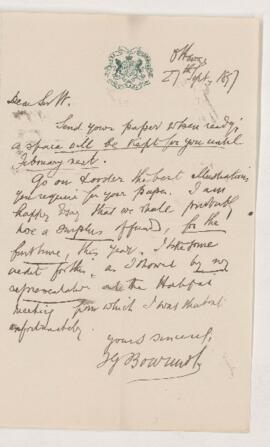 Ottawa
27th Sept, 1897
Dear Sir W.
Send your paper when ready;
a space will be kept for you until
February next.
Go on & order the best illustrations
you require for your paper. I am
happy to say that we shall probably
have a surplus of funds, for the
first time, this year. I take some
credit for this, as I showed by my
representation at the Halifax
meeting from which I was absent
unfortunately.
Yours sincerely
J G Bourinot